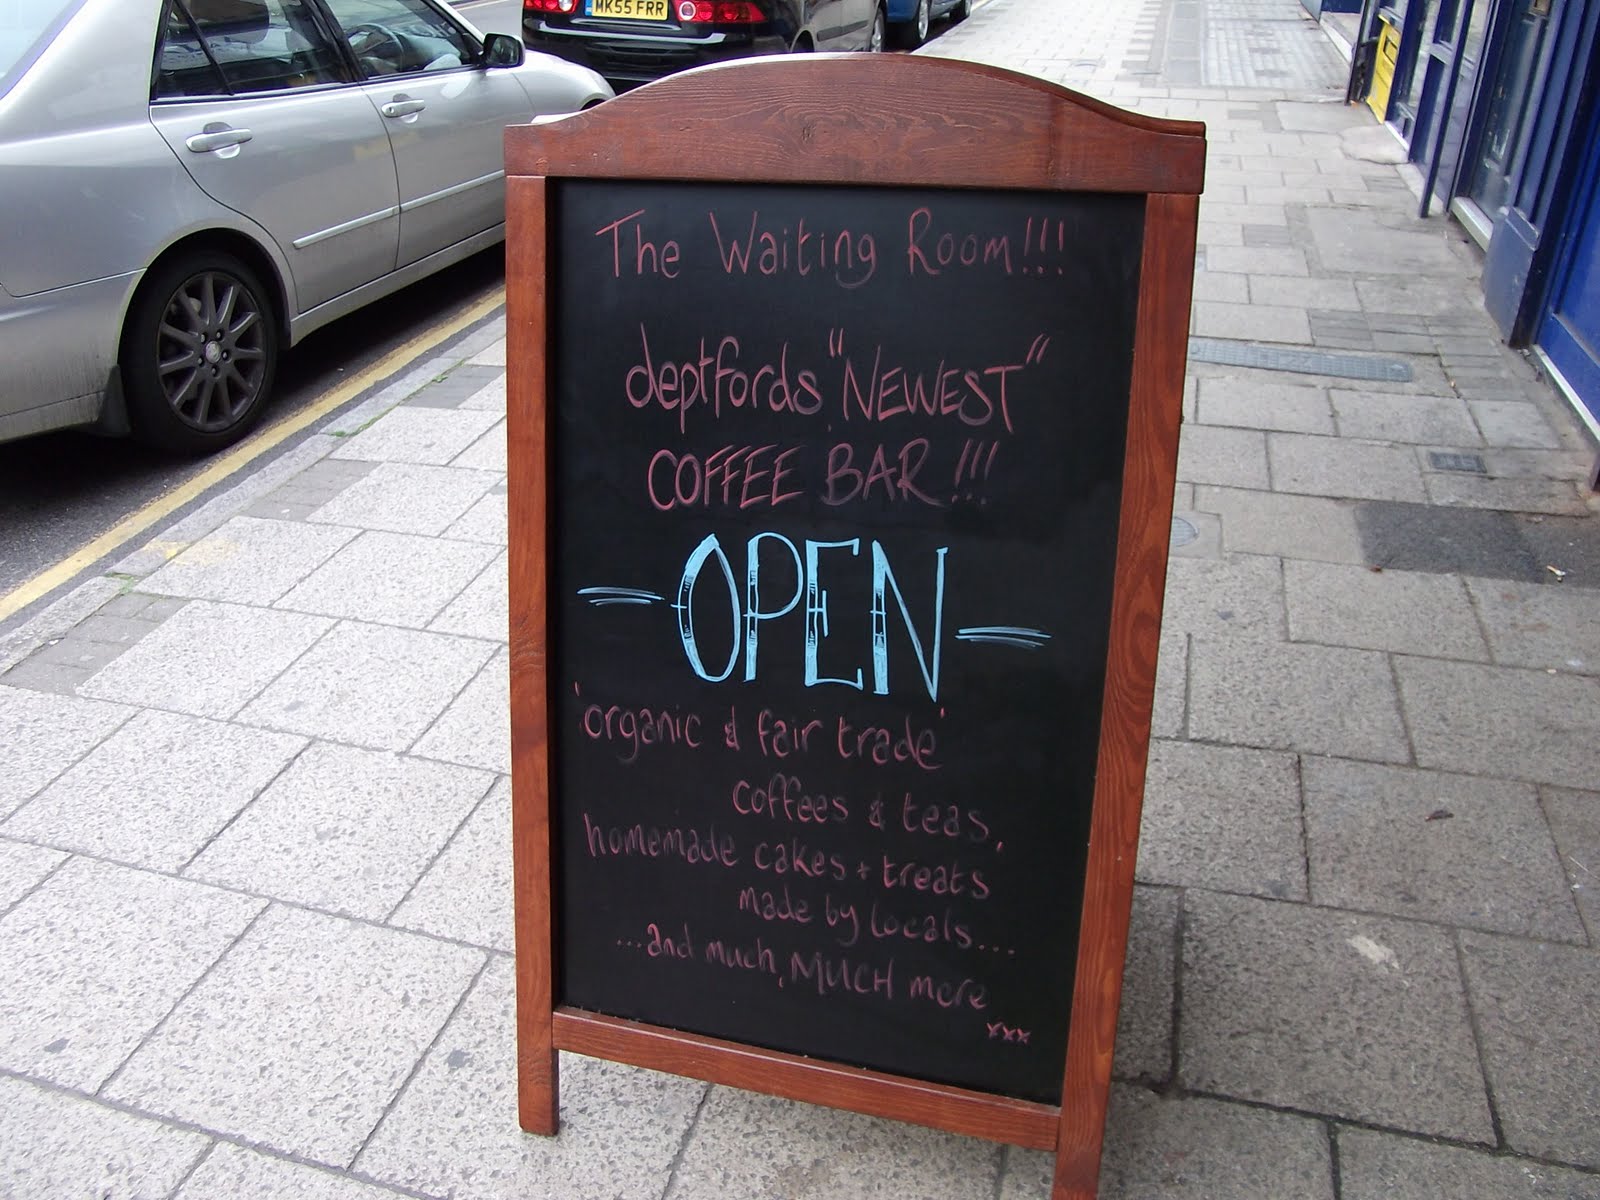 MK55 FRR
The Waiting Room!!!
deptfords "NEWEST"
COFFEE BAR!!!
-OPEN-
'organic & fair trade'
coffees & teas,
homemade cakes + treats
made by locals....
...and much, MUCH more
xxx